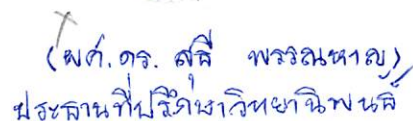 (ผศ.ดร. สุธี พรรณหาญ)
ประธานที่ปรึกษาวิทยานิพนธ์